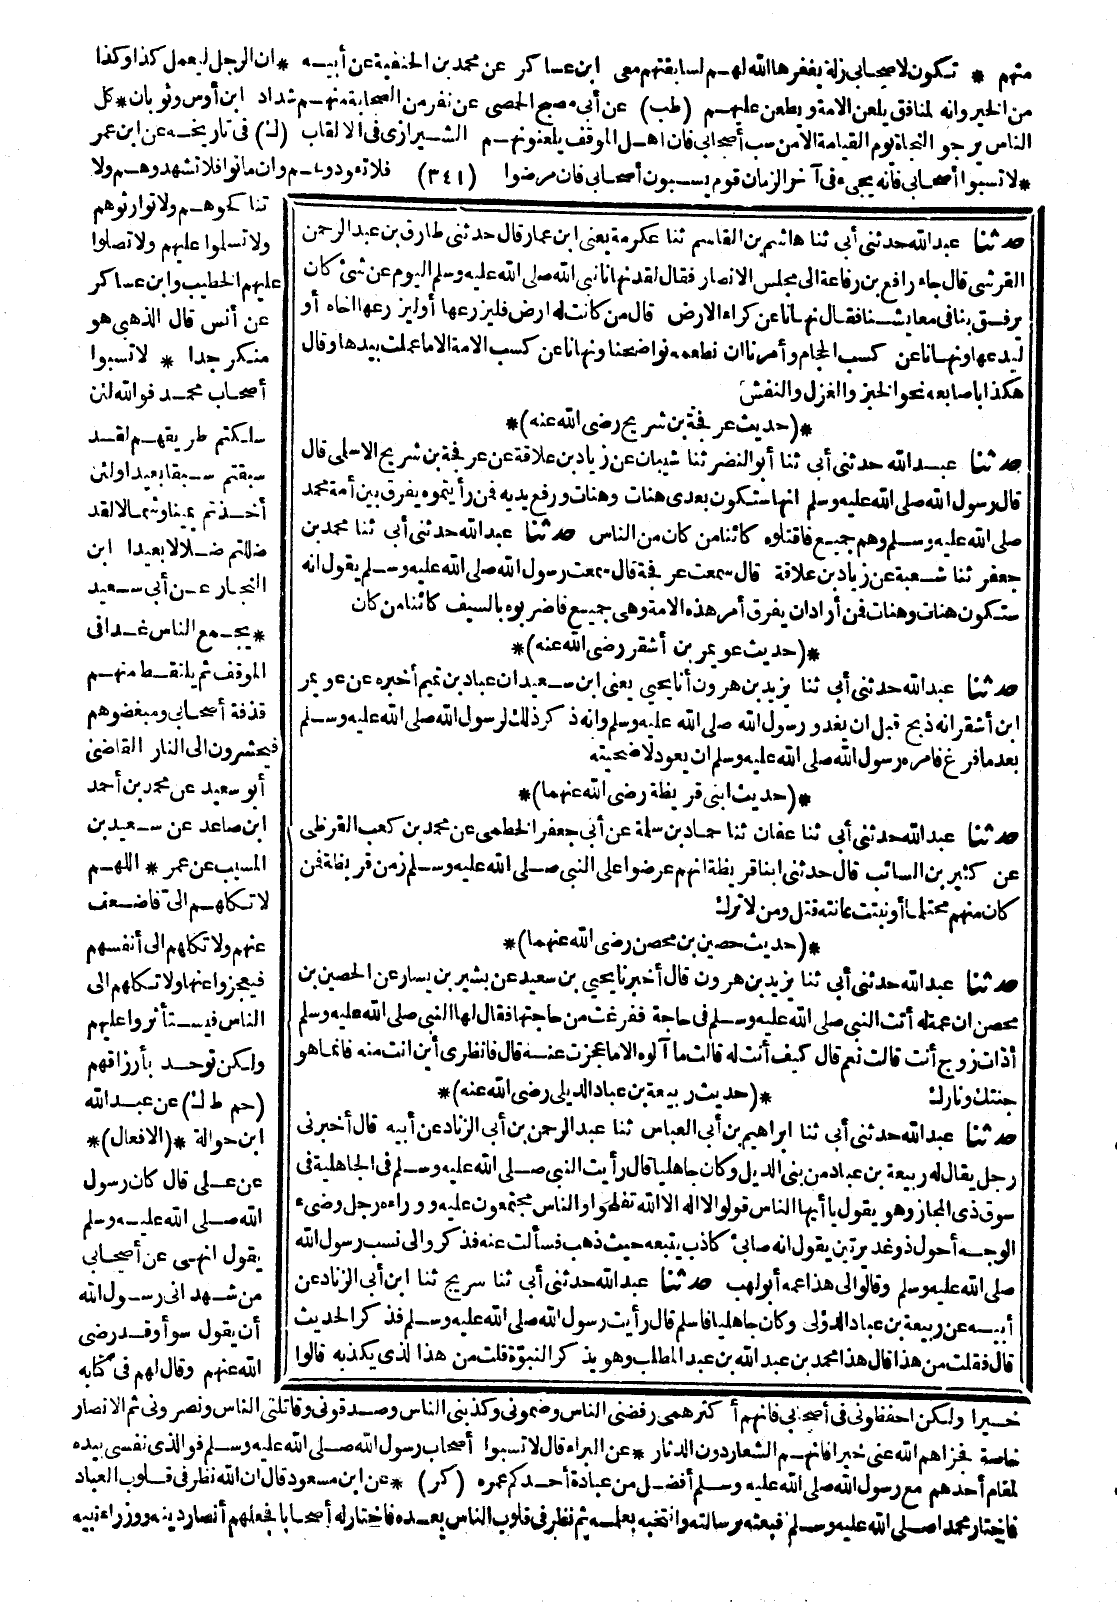 منهم * تكون لاصحابى زلة يغفرها الله لهم لسابقتهم معى ابن عساكر عن محمد بن الحنفية عن أبيه * ان الرجل ليعمل كذا وكذا
من الخير وانه لمنافق يلعن الامة ويطعن عليهم (طب) عن أبى مصبح الحمصى عن نفر من الصحابة منهم شداد ابن أوس وثوبان * كل
الناس يرجو النجاة يوم القيامة الا من سب أصحابى فان أهل الموقف يلعنونهم الشيرازى فى الالقاب (ك) فى تاريخه عن ابن عمر
* لا تسبوا أصحابى فانه يجىء فى آخر الزمان قوم يسبون أصحابى فان مرضوا (٣٤١) فلا تعودوهم وان ماتوا فلا تشهدوهم ولا
تناكحوهم ولا توارثوهم
ولا تسلموا عليهم ولا تصلوا
عليهم الخطيب وابن عساكر
عن أنس قال الذهبى هو
منكر جدا * لا تسبوا
أصحاب محمد فوالله لئن
سلكتم طريقهم لقد
سبقتم سبقا بعيدا ولئن
أخذتم يمينا وشمالا لقد
ضللتم ضلالا بعيدا ابن
النجار عن أبى سعيد
* يجمع الناس غدا فى
الموقف ثم يلتقط منهم
قذفة أصحابى ومبغضوهم
فيحشرون الى النار القاضى
أبو سعيد عن محمد بن أحمد
ابن صاعد عن سعيد بن
المسيب عن عمر * اللهم
لا تكلهم الىّ فاضعف
عنهم ولا تكلهم الى أنفسهم
فيعجزوا عنها ولا تكلهم الى
الناس فيستأثروا عليهم
ولكن توحد بأرزاقهم
(حم ط ك) عن عبد الله
ابن حوالة * (الافعال) *
عن على قال كان رسول
الله صلى الله عليه وسلم
يقول انهى عن أصحابى
من شهد انى رسول الله
أن يقول سوأ وقد رضى
الله عنهم وقال لهم فى كتابه
حدثنا عبد الله حدثنى أبى ثنا هاشم بن القاسم ثنا عكرمة يعنى ابن عمار قال حدثنى طارق بن عبد الرحمن
القرشى قال جاء رافع بن رفاعة الى مجلس الانصار فقال لقد نهانا نبى الله صلى الله عليه وسلم اليوم عن شئ كان
يرفق بنا فى معايشنا فقال نهانا عن كراء الارض قال من كانت له ارض فليزرعها أو ليزرعها اخاه أو
ليدعها ونهانا عن كسب الحجام وأمرنا ان نطعمه نواضحنا ونهانا عن كسب الامة الا ما عملت بيدها وقال
هكذا باصابعه نحو الخبز والغزل والنفش
* (حديث عرفجة بن شريح رضى الله عنه) *
حدثنا عبد الله حدثنى أبى ثنا أبو النضر ثنا شيبان عن زياد بن علاقة عن عرفجة بن شريح الاسلمى قال
قال رسول الله صلى الله عليه وسلم انها ستكون بعدى هنات وهنات ورفع يديه فمن رأيتموه يفرق بين أمة محمد
صلى الله عليه وسلم وهم جميع فاقتلوه كائنا من كان من الناس حدثنا عبد الله حدثنى أبى ثنا محمد بن
جعفر ثنا شعبة عن زياد بن علاقة قال سمعت عرفجة قال سمعت رسول الله صلى الله عليه وسلم يقول انه
ستكون هنات وهنات فمن أراد ان يفرق أمر هذه الامة وهى جميع فاضربوه بالسيف كائنا من كان
* (حديث عويمر بن أشقر رضى الله عنه) *
حدثنا عبد الله حدثنى أبى ثنا يزيد بن هرون أنا يحيى يعنى ابن سعيد ان عباد بن تميم أخبره عن عويمر
ابن أشقر انه ذبح قبل ان يغدو رسول الله صلى الله عليه وسلم وانه ذكر ذلك لرسول الله صلى الله عليه وسلم
بعد ما فرغ فامره رسول الله صلى الله عليه وسلم ان يعود لاضحيته
* (حديث ابنى قريظة رضى الله عنهما) *
حدثنا عبد الله حدثنى أبى ثنا عفان ثنا حماد بن سلمة عن أبى جعفر الخطمى عن محمد بن كعب القرظى
عن كثير بن السائب قال حدثنى ابنا قريظة انهم عرضوا على النبى صلى الله عليه وسلم زمن قريظة فمن
كان منهم محتلما أو نبتت عانته قتل ومن لا ترك
* (حديث حصين بن محصن رضى الله عنهما) *
حدثنا عبد الله حدثنى أبى ثنا يزيد بن هرون قال أخبرنا يحيى بن سعيد عن بشير بن يسار عن الحصين بن
محصن ان عمة له أتت النبى صلى الله عليه وسلم فى حاجة ففرغت من حاجتها فقال لها النبى صلى الله عليه وسلم
أذات زوج أنت قالت نعم قال كيف أنت له قالت ما آلوه الا ما عجزت عنه قال فانظرى أين انت منه فانما هو
جنتك ونارك * (حديث ربيعة بن عباد الديلى رضى الله عنه) *
حدثنا عبد الله حدثنى أبى ثنا ابراهيم بن أبى العباس ثنا عبد الرحمن بن أبى الزناد عن أبيه قال أخبرنى
رجل يقال له ربيعة بن عباد من بنى الديل وكان جاهليا قال رأيت النبى صلى الله عليه وسلم فى الجاهلية فى
سوق ذى المجاز وهو يقول يا أيها الناس قولوا لا اله الا الله تفلحوا والناس مجتمعون عليه ووراءه رجل وضىء
الوجه أحول ذو غديرتين يقول انه صابئ كاذب يتبعه حيث ذهب فسألت عنه فذكروا لى نسب رسول الله
صلى الله عليه وسلم وقالوا لى هذا عمه أبو لهب حدثنا عبد الله حدثنى أبى ثنا سريج ثنا ابن أبى الزناد عن
أبيه عن ربيعة بن عباد الدؤلى وكان جاهليا فاسلم قال رأيت رسول الله صلى الله عليه وسلم فذكر الحديث
قال فقلت من هذا قال هذا محمد بن عبد الله بن عبد المطلب وهو يذكر النبوّة قلت من هذا الذى يكذبه قالوا
خيرا ولكن احفظونى فى أصحابى فانهم أكثرهمى رفضنى الناس وضمونى وكذبنى الناس وصدقونى وقاتلنى الناس ونصرونى ثم الانصار
خاصة فجزاهم الله عنى خيرا فانهم الشعار دون الدثار * عن البراء قال لا تسبوا أصحاب رسول الله صلى الله عليه وسلم فوالذى نفسى بيده
لمقام أحدهم مع رسول الله صلى الله عليه وسلم أفضل من عبادة أحدكم عمره (كر) * عن ابن مسعود قال ان الله نظر فى قلوب العباد
فاختار محمدا صلى الله عليه وسلم فبعثه برسالته وانتخبه بعلمه ثم نظر فى قلوب الناس بعده فاختار له أصحابا فجعلهم أنصار دينه ووزراء نبيه